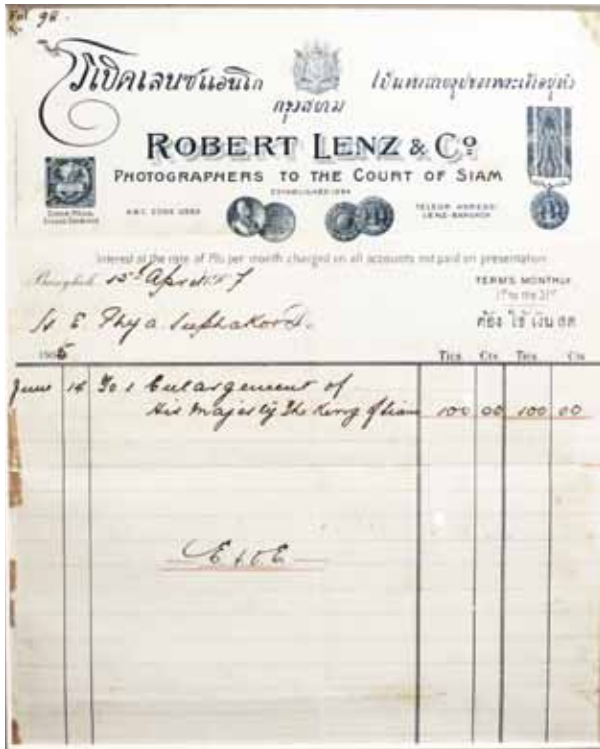 Fol 98
โรเบิดเลนซ์แอนโก
เป็นพนักงานรูปของพระเจ้าอยู่หัว
กรุงสยาม
ROBERT LENZ & Co
PHOTOGRAPHERS TO THE COURT OF SIAM
ESTABLISHED 1894
A.B.C. CODE USED
TELEGR. ADRESS:
LENZ-BANGKOK
Interest at the rate of 1% per month charged on all accounts not paid on presentation
Bangkok, 15 April 7
TERMS MONTHLY
1st to the 31st
H. E. Phya
ใช้ เงิน สด
1905
Tics. Cts. Tics. Cts
June 14 To 1 Enlargement of
His Majesty The King of Siam 100 00 100 00
E & O E